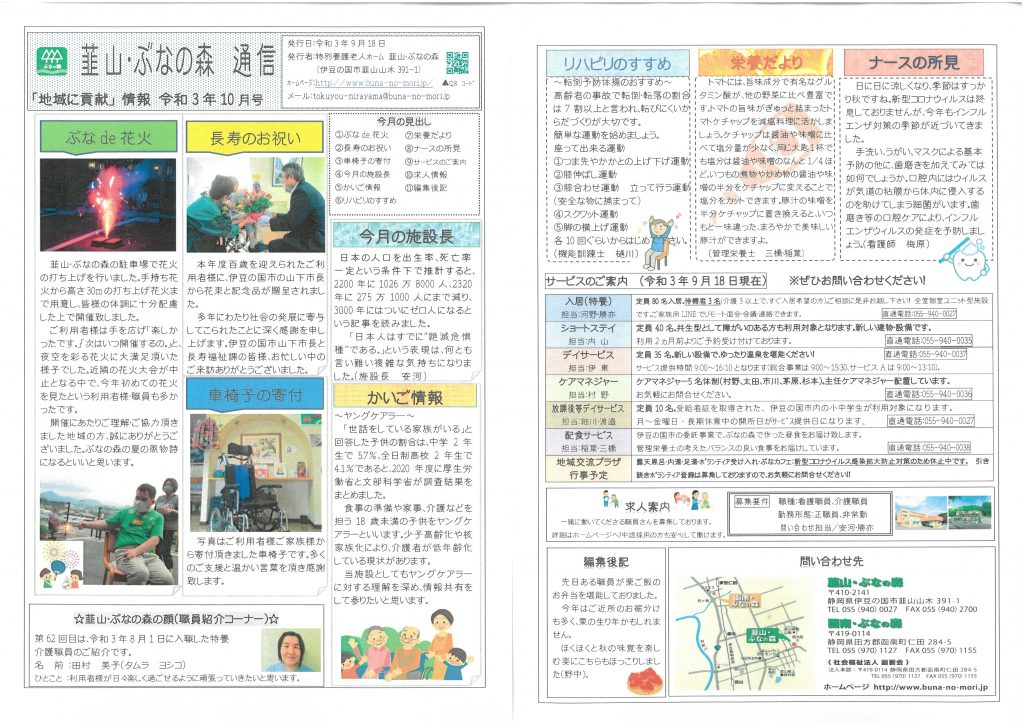 韮山・ぶなの森 通信
「地域に貢献」情報 令和3年10月号
発行日:令和3年9月18日
発行者:特別養護老人ホーム 韮山・ぶなの森
(伊豆の国市韮山山木 391-1)
ホームページ:http://www.buna-no-mori.jp/ ▲QRコード
メール:tokuyou-nirayama@buna-no-mori.jp
ぶな de 花火
韮山・ぶなの森の駐車場で花火
の打ち上げを行いました。手持ち花
火から高さ30mの打ち上げ花火ま
で用意し、皆様の体調に十分配慮
した上で開催致しました。
ご利用者様は手を広げ「楽しか
ったです。「次はいつ開催するの。」と、
夜空を彩る花火に大満足頂いた
様子でした。近隣の花火大会が中
止となる中で、今年初めての花火
を見たという利用者様・職員も多か
ったです。
開催にあたりご理解・ご協力頂き
ました地域の方、誠にありがとうご
ざいました。ぶなの森の夏の風物詩
になるといいと思います。
長寿のお祝い
本年度百歳を迎えられたご利
用者様に、伊豆の国市の山下市長
から花束と記念品が贈呈されまし
た。
多年にわたり社会の発展に寄与
してこられたことに深く感謝を申し
上げます。伊豆の国市山下市長と
長寿福祉課の皆様、お忙しい中の
ご来訪ありがとうございました。
車椅子の寄付
写真はご利用者様ご家族様か
ら寄付頂きました車椅子です。多く
のご支援と温かい言葉を頂き感謝
致します。
今月の見出し
①ぶな de 花火
②長寿のお祝い
③車椅子の寄付
④今月の施設長
⑤かいご情報
⑥リハビリのすすめ
⑦栄養だより
⑧ナースの所見
⑨サービスのご案内
⑩求人情報
⑪編集後記
今月の施設長
日本の人口を出生率、死亡率
一定という条件下で推計すると、
2200年に1026万8000人、2320
年に275万1000人にまで減り、
3000年にはついにゼロ人になると
いう記事を読みました。
「日本人はすでに“絶滅危惧
種”である。」という表現は、何とも言
い難い複雑な気持ちになりまし
た。(施設長 安河)
かいご情報
~ヤングケアラー~
「世話をしている家族がいる」と
回答した子供の割合は、中学2年
生で5.7%、全日制高校2年生で
4.1%であると、2020年度に厚生労
働省と文部科学省が調査結果を
まとめました。
食事の準備や家事、介護などを
担う18歳未満の子供をヤングケ
アラーといいます。少子高齢化や核
家族化により、介護者が低年齢化
している現状があります。
当施設としてもヤングケアラーに
対する理解を深め、情報共有をし
て参りたいと思います。
☆韮山・ぶなの森の顔(職員紹介コーナー)☆
第62回目は、令和3年8月1日に入職した特養
介護職員のご紹介です。
名 前 :田村 美子(タムラ ヨシコ)
ひとこと :利用者様が日々楽しく過ごせるように頑張っていきたいと思います。
リハビリのすすめ
~転倒予防体操のおすすめ~
高齢者の事故で転倒・転落の割合
は7割以上と言われ、転びにくいか
らだづくりが大切です。
簡単な運動を始めましょう。
座って出来る運動
①つま先やかかとの上げ下げ運動
②膝伸ばし運動
③膝合わせ運動 立って行う運動
(安全な物に捕まって)
④スクワット運動
⑤脚の横上げ運動
各10回ぐらいからはじめ下さい。
(機能訓練士 樋川)
栄養だより
トマトには、旨味成分で有名なグル
タミン酸が、他の野菜に比べ豊富で
す。トマトの旨味がぎゅっと詰まったト
マトケチャップを減塩料理に活かしま
しょう。ケチャップは醤油や味噌に比
べて塩分量が少なく、同じ大匙1杯で
も塩分は醤油や味噌のなんと1/4ほ
ど。いつもの煮物や炒め物の醤油や味
噌の半分をケチャップに変えることで
塩分をカットできます。豚汁の味噌を
半分ケチャップに置き換えると、いつ
もと一味違った、まろやかで美味しい
豚汁ができますよ。
(管理栄養士 三橋・稲葉)
ナースの所見
日に日に涼しくなり、季節はすっか
り秋ですね。新型コロナウイルスは終
息しておりませんが、今年もインフル
エンザ対策の季節が近づいてきま
した。
手洗い、うがい、マスクによる基本
予防の他に、歯磨きを加えてみては
如何でしょうか。口腔内にはウイルス
が気道の粘膜から体内に侵入する
のを助けてしまう細菌がいます。歯
磨き等の口腔ケアにより、インフル
エンザウィルスの発症を予防しましょ
う。(看護師 梅原)
サービスのご案内 (令和3年9月18日現在) ※ぜひお問い合わせください!
入居(特養)
担当:河野・勝亦
定員80名入居。待機者3名/介護3以上で、すぐ入居希望の方、ご相談に是非お越し下さい! 全室個室ユニット型施設
です。ご家族用LINEでリモート面会・会議連絡できます。 直通電話:055-940-0027
ショートステイ
担当:内 山
定員40名。共生型として障がいのある方も利用対象となります。新しい建物・設備です。
利用2ヵ月前よりご予約受け付けております。 直通電話:055-940-0035
デイサービス
担当:伊 東
定員35名。新しい設備で、ゆったり温泉を堪能ください! 直通電話:055-940-0037
サービス提供時間 9:00~16:10となります(総合事業は9:00~15:30、サービスAは9:00~13:10)。
ケアマネジャー
担当:村 野
ケアマネジャー5名体制(村野、太田、市川、茅原、杉本)。主任ケアマネジャー配置しています。
お気軽にお問合せください。 直通電話:055-940-0036
放課後等デイサービス
担当:細川・渡邉
定員10名。受給者証を取得された、伊豆の国市内の小中学生が利用対象になります。
月~金曜日・長期休業中の開所日がサービス提供日になります。 直通電話:055-940-0027
配食サービス
担当:稲葉・三橋
伊豆の国市の委託事業で、ぶなの森で作った昼食をお届け致します。
管理栄養士の考えたバランスの良い食事をお届けしています。 直通電話:055-940-0038
地域交流プラザ
行事予定
露天風呂・内湯・足湯・ボランティア受け入れ・ぶなカフェ:新型コロナウイルス感染拡大防止対策のため休止中です。 引き
続きボランティア登録は募集しておりますので、お気軽にお問合せください!!
求人案内
一緒に働いてくださる職員さんを募集しております。
詳細はホームページへ!中途採用の方も安心して働けます。
募集要件
職種:看護職員、介護職員
勤務形態:正職員、非常勤
問い合わせ担当/安河・勝亦
編集後記
先日ある職員が栗ご飯の
お弁当を堪能しておりました。
今年はご近所のお裾分け
も多く、栗の生り年かもしれま
せん。
ほくほくと秋の味覚を楽し
む姿にこちらもほっこりしまし
た(野中)。
問い合わせ先
韮山・ぶなの森
〒410-2141
静岡県伊豆の国市韮山山木 391-1
TEL 055 (940) 0027 FAX 055 (940) 2700
函南・ぶなの森
〒419-0114
静岡県田方郡函南町仁田 284-5
TEL 055 (970) 1127 FAX 055 (970) 1155
《 社会福祉法人 函要会 》
法人本部:〒419-0114 静岡県田方郡函南町仁田 284-5
TEL 055 (970) 1127 FAX 055 (970) 1155
ホームページ http://www.buna-no-mori.jp